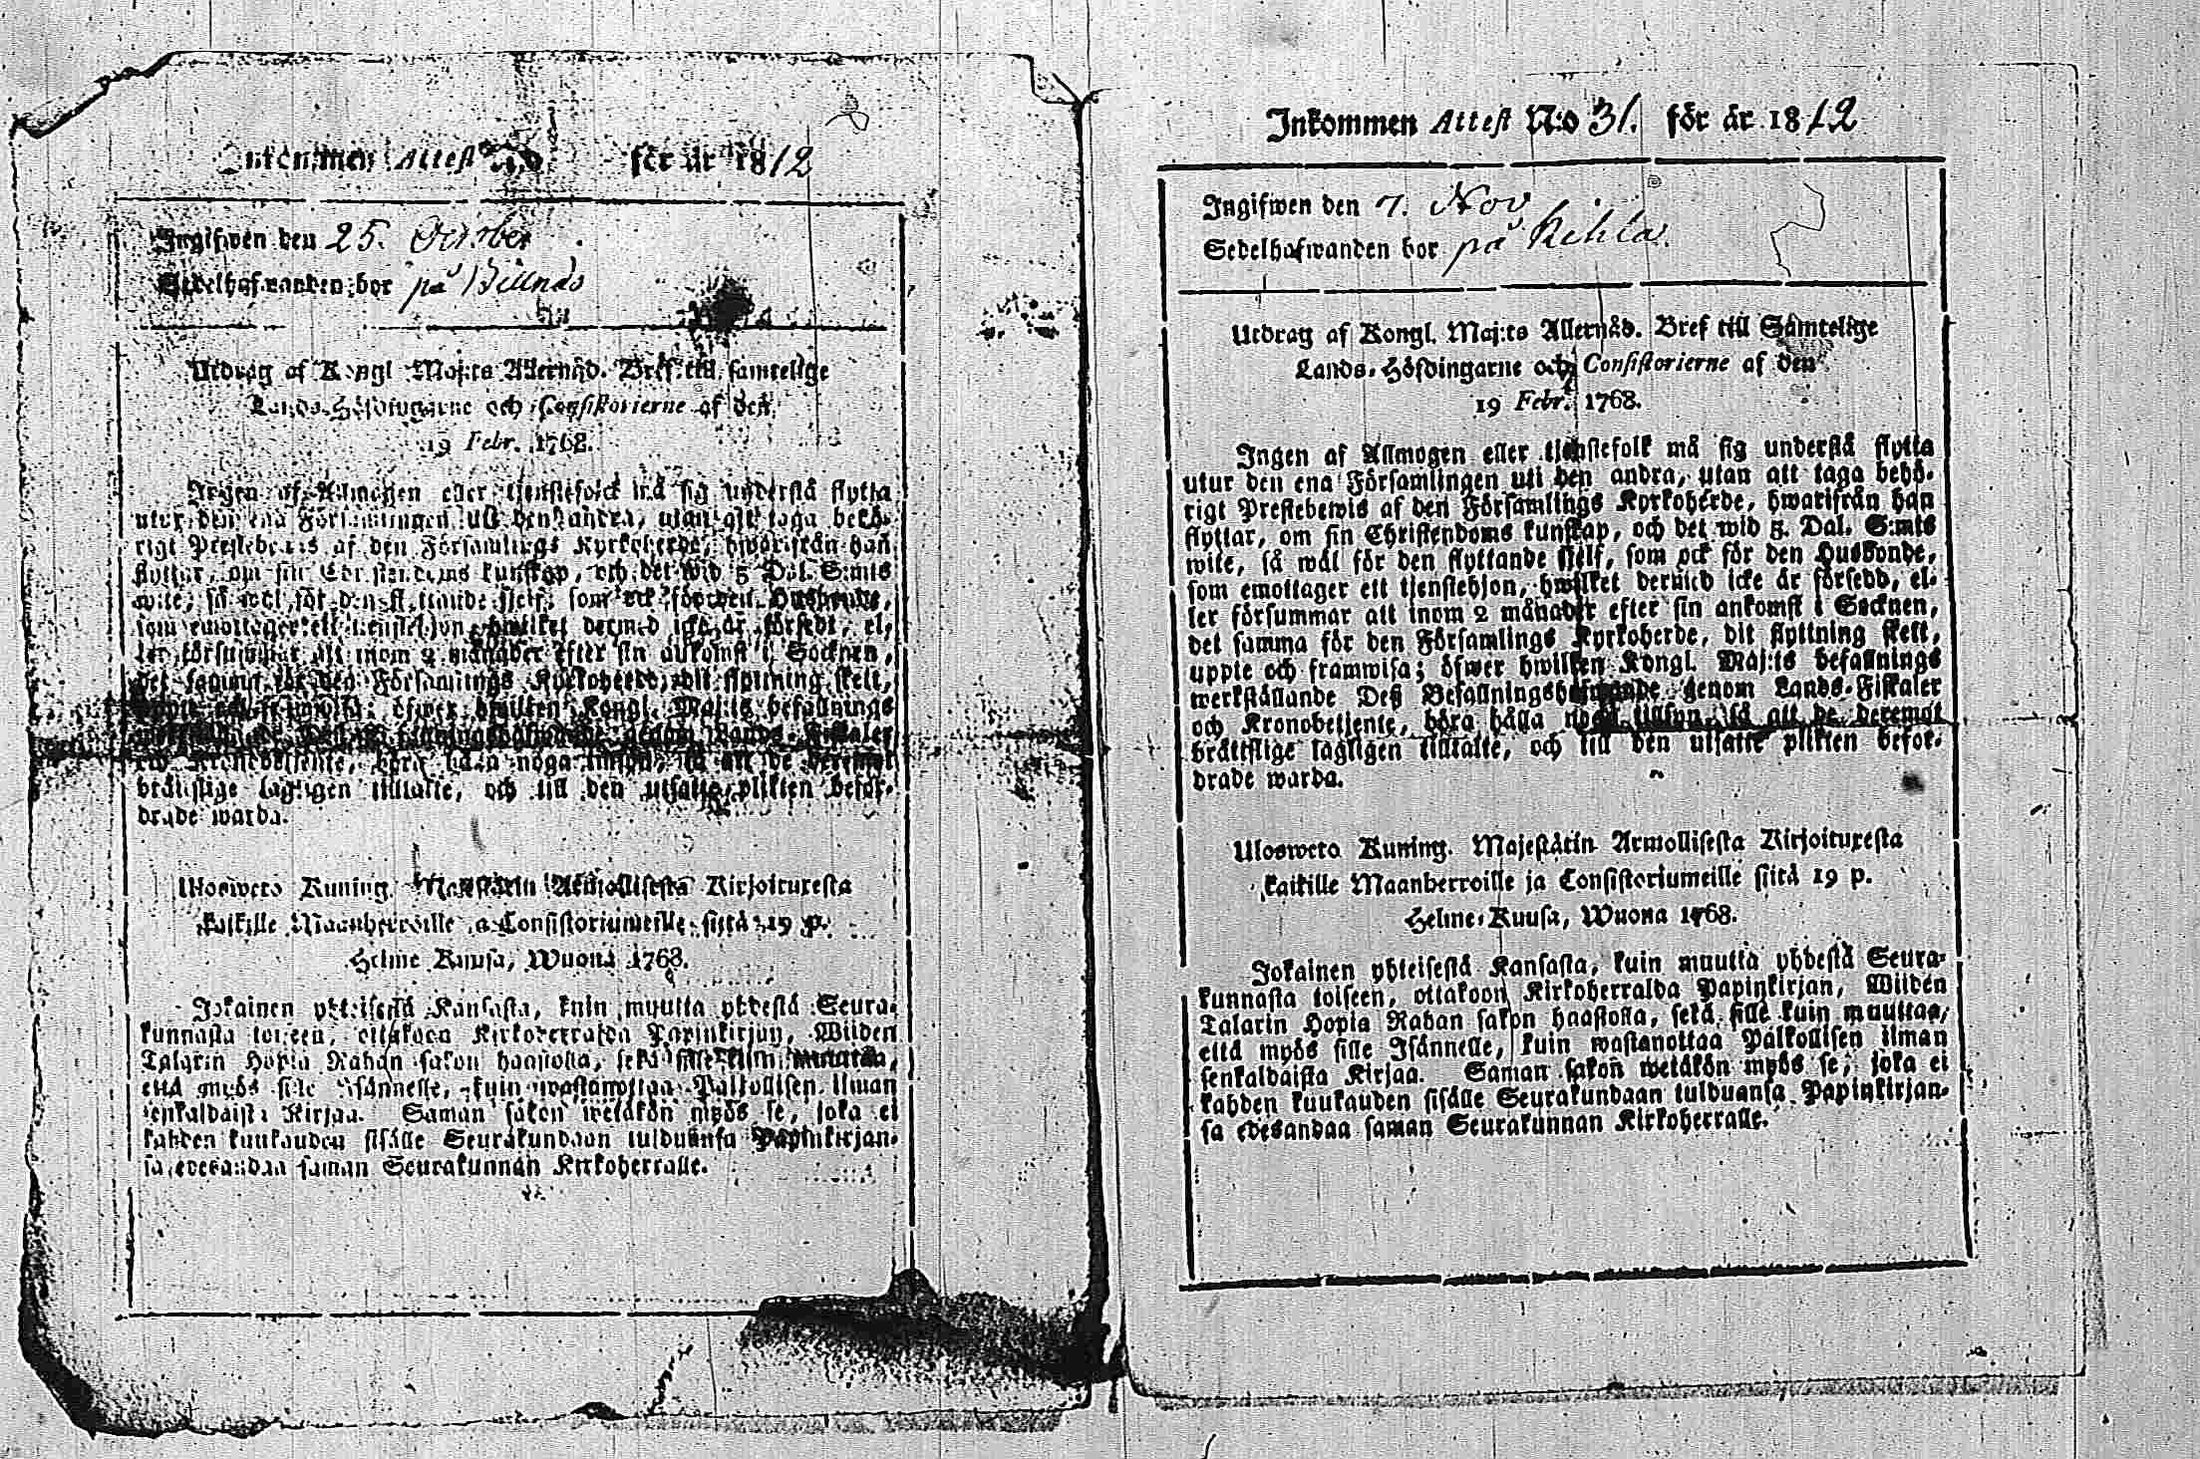 Inkommen Attest No för år 1812
Ingifwen den 25. October
Sedelhafwanden bor på Billnäs
Utdrag af Kongl. Maj:ts Allernåd. Bref till samtelige
Lands-Höfdingarne och Consistorierne af den
19 Febr. 1768.
Ingen af Allmogen eller tjenstefolck må sig understå flytta
utur den ena Församlingen uti den andra, utan att taga behö-
rigt Prestebewis af den Församlings Kyrkoherde, hwarifrån han
flyttar, om sin Christendoms kunskap, och det wid 5 Dal. S:mts
wite, så wäl för den flyttande sjelf, som ock för den Husbonde,
som emottager ett tjenstehjon, hwilket dermed icke är försedt, el-
ler försummar att inom 2 månader efter sin ankomst i Socknen,
det samma för den Församlings Kyrkoherde, dit flyttning skett,
uppte och framwisa; öfwer hwilken Kongl. Maj:ts befallnings
werkställande Deß Befallningshafwande genom Lands-Fiskaler
och Kronobetjente, böra hålla noga tillsyn, så att de deremot
bråttslige lagligen tilltalte, och till den utsatte plikten befor-
drade warda.
Ulosweto Kuning. Majestätin Armollisesta Kirjoituxesta
kaikille Maanherroille ja Consistoriumeille siitä 19 p.
Helme Kuusa, Wuona 1768.
Jokainen yhteisestä Kansasta, kuin muutta yhdestä Seura-
kunnasta toiseen, ottakoon Kirkoherralda Papinkirjan, Wiiden
Talarin Hopia Rahan sakon haastolla, sekä sille kuin muuttaa,
että myös sille Isännelle, kuin wastanottaa Palkollisen ilman
senkaldaista Kirjaa. Saman sakon wetäkön myös se, joka ei
kahden kuukauden sisälle Seurakundaan tulduansa Papinkirjan-
sa edesandaa saman Seurakunnan Kirkoherralle.
Inkommen Attest N:o 31. för år 1812
Ingifwen den 7. Nov
Sedelhafwanden bor på Kihla
Utdrag af Kongl. Maj:ts Allernåd. Bref till Samtelige
Lands-Höfdingarne och Consistorierne af den
19 Febr. 1768.
Ingen af Allmogen eller tjenstefolk må sig understå flytta
utur den ena Församlingen uti den andra, utan att taga behö-
rigt Prestebewis af den Församlings Kyrkoherde, hwarifrån han
flyttar, om sin Christendoms kunskap, och det wid 5. Dal. S:mts
wite, så wäl för den flyttande sjelf, som ock för den Husbonde,
som emottager ett tjenstehjon, hwilket dermed icke är försedd, el-
ler försummar att inom 2 månader efter sin ankomst i Socknen,
det samma för den Församlings Kyrkoherde, dit flyttning skett,
uppte och framwisa; öfwer hwilken Kongl. Maj:ts befallnings
werkställande Deß Befallningshafwande genom Lands-Fiskaler
och Kronobetjente, böra hålla noga tillsyn, så att de deremot
bråttslige lagligen tilltalte, och till den utsatte plikten befor-
drade warda.
Ulosweto Kuning. Majestätin Armollisesta Kirjoituxesta
kaikille Maanherroille ja Consistoriumeille siitä 19 p.
Helme-Kuusa, Wuona 1768.
Jokainen yhteisestä Kansasta, kuin muutta yhdestä Seura-
kunnasta toiseen, ottakoon Kirkoherralda Papinkirjan, Wiiden
Talarin Hopia Rahan sakon haastolla, sekä sille kuin muuttaa,
että myös sille Isännelle, kuin wastanottaa Palkollisen ilman
senkaldaista Kirjaa. Saman sakon wetäkön myös se, joka ei
kahden kuukauden sisälle Seurakundaan tulduansa Papinkirjan-
sa edesandaa saman Seurakunnan Kirkoherralle.